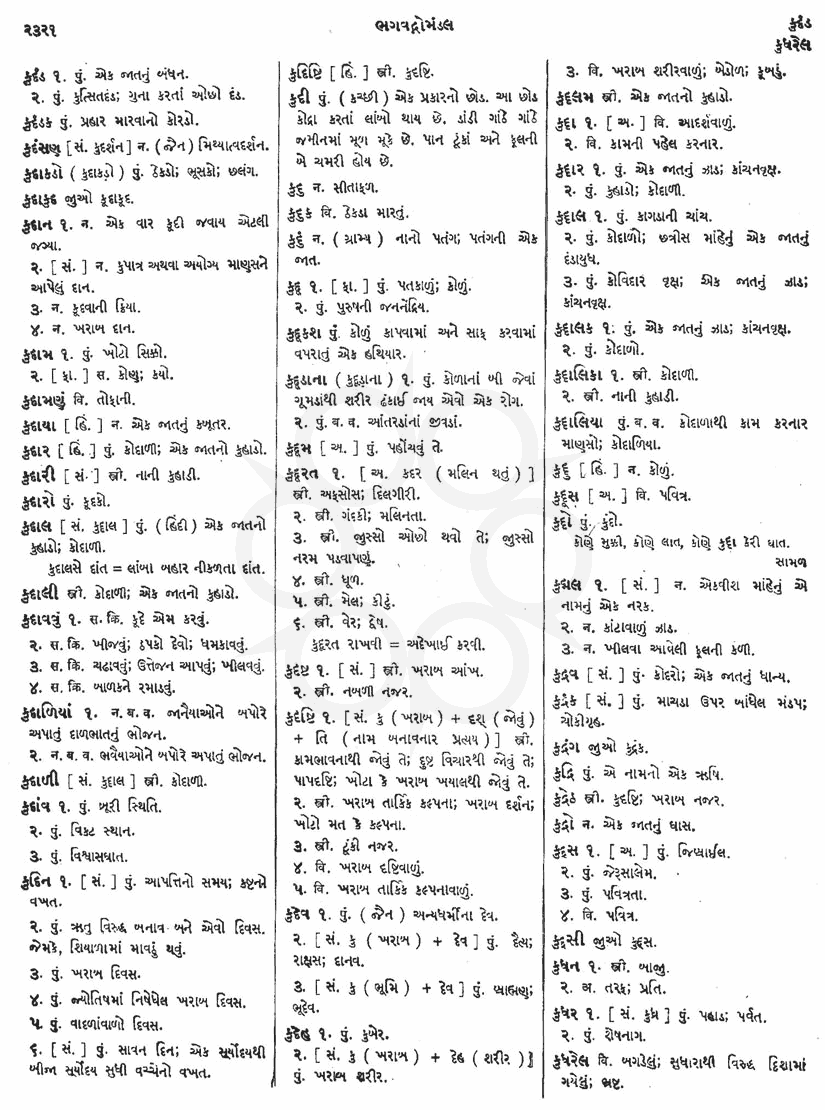 ૨૩૨૧
ભગવદ્ગોમંડલ
કુદંડ
કુધરેલ
કુદંડ ૧. પું. એક જાતનું બંધન.
૨. પું. કુત્સિતદંડ; ગુના કરતાં ઓછો દંડ.
કુદંડક પું. પ્રહાર મારવાનો કોરડો.
કુદંસણ [ સં. કુદર્શન ] ન. ( જૈન ) મિથ્યાત્વદર્શન.
કુદાકડો ( કુદાકડ઼ો ) પું. ઠેકડો; ભૂસકો; છલંગ.
કુદાકુદ જુઓ કૂદાકૂદ.
કુદાન ૧. ન. એક વાર કૂદી જવાય એટલી
જગ્યા.
૨. [ સં. ] ન. કુપાત્ર અથવા અયોગ્ય માણુસને
આપેલું દાન.
૩. ન. કૂદવાની ક્રિયા.
૪. ન. ખરાબ દાન.
કુદામ ૧. પું. ખોટો સિક્કો.
૨. [ ફા. ] સ. કોણુ; કયો.
કુદામણું વિ. તોફાની.
કુદાયા [ હિં. ] ન. એક જાતનું કબૂતર.
કુદાર [ હિં. ] પું. કોદાળી; એક જાતનો કુહાડો.
કુદારી [ સં. ] સ્ત્રી. નાની કુહાડી.
કુદારો પું. કૂદકો.
કુદાલ [ સં. કુદ્દાલ ] પું. ( હિંદી ) એક જાતનો
કુહાડો; કોદાળી.
કુદાલસે દાંત = લાંબા બહાર નીકળતા દાંત.
કુદાલી સ્ત્રી. કોદાળી; એક જાતનો કુહાડો.
કુદાવવું ૧. સ. ક્રિ. કૂદે એમ કરવું.
૨. સ. ક્રિ. ખીજવવું; ઠપકો દેવો; ધમકાવવું.
૩. સ. ક્રિ. ચઢાવવું; ઉત્તેજન આપવું; ખીલવવું.
૪. સ. ક્રિ. બાળકને રમાડવું.
કુદાળિયાં ૧. ન. બ. વ. જાનૈયાઓને બપોરે
અપાતું દાળભાતનું ભોજન.
૨. ન. બ. વ. ભવૈયાઓને બપોરે અપાતું ભોજન.
કુદાળી [ સં. કુદ્દાલ ] સ્ત્રી. કોદાળી.
કુદાંવ ૧. પું. બૂરી સ્થિતિ.
૨. પું. વિકટ સ્થાન.
૩. પું. વિશ્વાસઘાત.
કુદિન ૧. [ સં. ] પું. આપત્તિનો સમય; કષ્ટનો
વખત.
૨. પું. ઋતુ વિરુદ્ધ બનાવ બને એવો દિવસ.
જેમકે, શિયાળામાં માવઠું થવું.
૩. પું. ખરાબ દિવસ.
૪. પું. જ્યોતિષમાં નિષેધેલ ખરાબ દિવસ.
૫. પું. વાદળાંવાળો દિવસ.
૬. [ સં. ] પું. સાવન દિન; એક સૂર્યોદયથી
બીજા સૂર્યોદય સુધી વચ્ચેનો વખત.
કુદિષ્ટિ [ હિં. ] સ્ત્રી. કુદૃષ્ટિ.
કુદી પું. ( કચ્છી ) એક પ્રકારનો છોડ. આ છોડ
કોદ્રા કરતાં લાંબો થાય છે. ડાંડી ગાંઠે ગાંઠે
જમીનમાં મૂળ મૂકે છે. પાન ટૂંકાં અને ફૂલની
બે ચમરી હોય છે.
કુદુ ન. સીતાફળ.
કુદુક વિ. ઠેકડા મારતું.
કુદું ન. ( ગ્રામ્ય ) નાનો પતંગ; પતંગની એક
જાત.
કુદૂ ૧. [ ફા. ] પું. પતકાળું; કોળું.
૨. પું. પુરુષની જનનેંદ્રિય.
કુદૂકશ પું. કોળું કાપવામાં અને સાફ કરવામાં
વપરાતું એક હથિયાર.
કુદૂડાના ( કુદૂડ઼ાના ) ૧. પું. કોળાનાં બી જેવાં
ગૂમડાંથી શરીર ઢંકાઈ જાય એવો એક રોગ.
૨. પું. બ. વ. આંતરડાંનાં જીવડાં.
કુદૂમ [ અ. ] પું. પહોંચવું તે.
કુદૂરત ૧. [ અ. કદર ( મલિન થવું ) ]
સ્ત્રી. અફસોસ; દિલગીરી.
૨. સ્ત્રી. ગંદકી; મલિનતા.
૩. સ્ત્રી. જુસ્સો ઓછો થવો તે; જુસ્સો
નરમ પડવાપણું.
૪. સ્ત્રી. ધૂળ.
૫. સ્ત્રી. મેલ; કીટું.
૬. સ્ત્રી. વેર; દ્વેષ.
કુદૂરત રાખવી = અદેખાઈ કરવી.
કુદૃષ્ટ ૧. [ સં. ] સ્ત્રી. ખરાબ આંખ.
૨. સ્ત્રી. નબળી નજર.
કુદૃષ્ટિ ૧. [ સં. કુ ( ખરાબ ) + દૃશ્ ( જોવું )
+ તિ ( નામ બનાવનાર પ્રત્યય ) ] સ્ત્રી.
કામભાવનાથી જોવું તે; દુષ્ટ વિચારથી જોવું તે;
પાપદૃષ્ટિ; ખોટા કે ખરાબ ખયાલથી જોવું તે.
૨. સ્ત્રી. ખરાબ તાર્કિક કલ્પના; ખરાબ દર્શન;
ખોટો મત કે કલ્પના.
૩. સ્ત્રી. ટૂંકી નજર.
૪. વિ. ખરાબ દૃષ્ટિવાળું.
૫. વિ. ખરાબ તાર્કિક કલ્પનાવાળું.
કુદેવ ૧. પું. ( જૈન ) અન્યધર્મીના દેવ.
૨. [ સં. કુ ( ખરાબ ) + દેવ ] પું. દૈત્ય;
રાક્ષસ; દાનવ.
૩. [ સં. કુ ( ભૂમિ ) + દેવ ] પું. બ્રાહ્મણ;
ભૂદેવ.
કુદેહ ૧. પું. કુબેર.
૨. [ સં. કુ ( ખરાબ ) + દેહ ( શરીર ) ]
પું. ખરાબ શરીર.
૩. વિ. ખરાબ શરીરવાળું; બેડોળ; કૂબડું.
કુદ્દલમ સ્ત્રી. એક જાતનો કુહાડો.
કુદ્દા ૧. [ અ. ] વિ. આદર્શવાળું.
૨. વિ. કામની પહેલ કરનાર.
કુદ્દાર ૧. પું. એક જાતનું ઝાડ; કાંચનવૃક્ષ.
૨. પું. કુહાડો; કોદાળી.
કુદ્દાલ ૧. પું. કાગડાની ચાંચ.
૨. પું. કોદાળો; છત્રીસ માંહેનું એક જાતનું
દંડાયુધ.
૩. પું. કોવિદાર વૃક્ષ; એક જાતનું ઝાડ;
કાંચનવૃક્ષ.
કુદ્દાલક ૧. પું. એક જાતનું ઝાડ; કાંચનવૃક્ષ.
૨. પું. કોદાળો.
કુદ્દાલિકા ૧. સ્ત્રી. કોદાળી.
૨. સ્ત્રી. નાની કુહાડી.
કુદ્દાલિયા પું. બ. વ. કોદાળાથી કામ કરનાર
માણસો; કોદાળિયા.
કુદ્દુ [ હિં. ] ન. કોળું.
કુદ્દૂસ [ અ. ] વિ. પવિત્ર.
કુદ્દો પું. કુંદો.
કોણે મુક્કી, કોણે લાત, કોણે કુદ્દા કેરી ઘાત.
સામળ
કુદ્મલ ૧. [ સં. ] ન. એકવીશ માંહેનું એ
નામનું એક નરક.
૨. ન. કાંટાવાળું ઝાડ.
૩. ન. ખીલવા આવેલી ફૂલની કળી.
કુદ્રવ [ સં. ] પું. કોદરો; એક જાતનું ધાન્ય.
કુદ્રંક [ સં. ] પું. માચડા ઉપર બાંધેલ મંડપ;
ચોકીગૃહ.
કુદ્રંગ જુઓ કુદ્રંક.
કુદ્રિ પું. એ નામનો એક ઋષિ.
કુદ્રેઠ સ્ત્રી. કુદૃષ્ટિ; ખરાબ નજર.
કુદ્રો ન. એક જાતનું ઘાસ.
કુદ્સ ૧. [ અ. ] પું. જિબ્રાઈલ.
૨. પું. જેરૂસાલેમ.
૩. પું. પવિત્રતા.
૪. વિ. પવિત્ર.
કુદ્સી જુઓ કુદ્સ.
કુધન ૧. સ્ત્રી. બાજુ.
૨. અ. તરફ; પ્રતિ.
કુધર ૧. [ સં. કુધ્ર ] પું. પહાડ; પર્વત.
૨. પું. શેષનાગ.
કુધરેલ વિ. બગડેલું; સુધારાથી વિરુદ્ધ દિશામાં
ગયેલું; ભ્રષ્ટ.